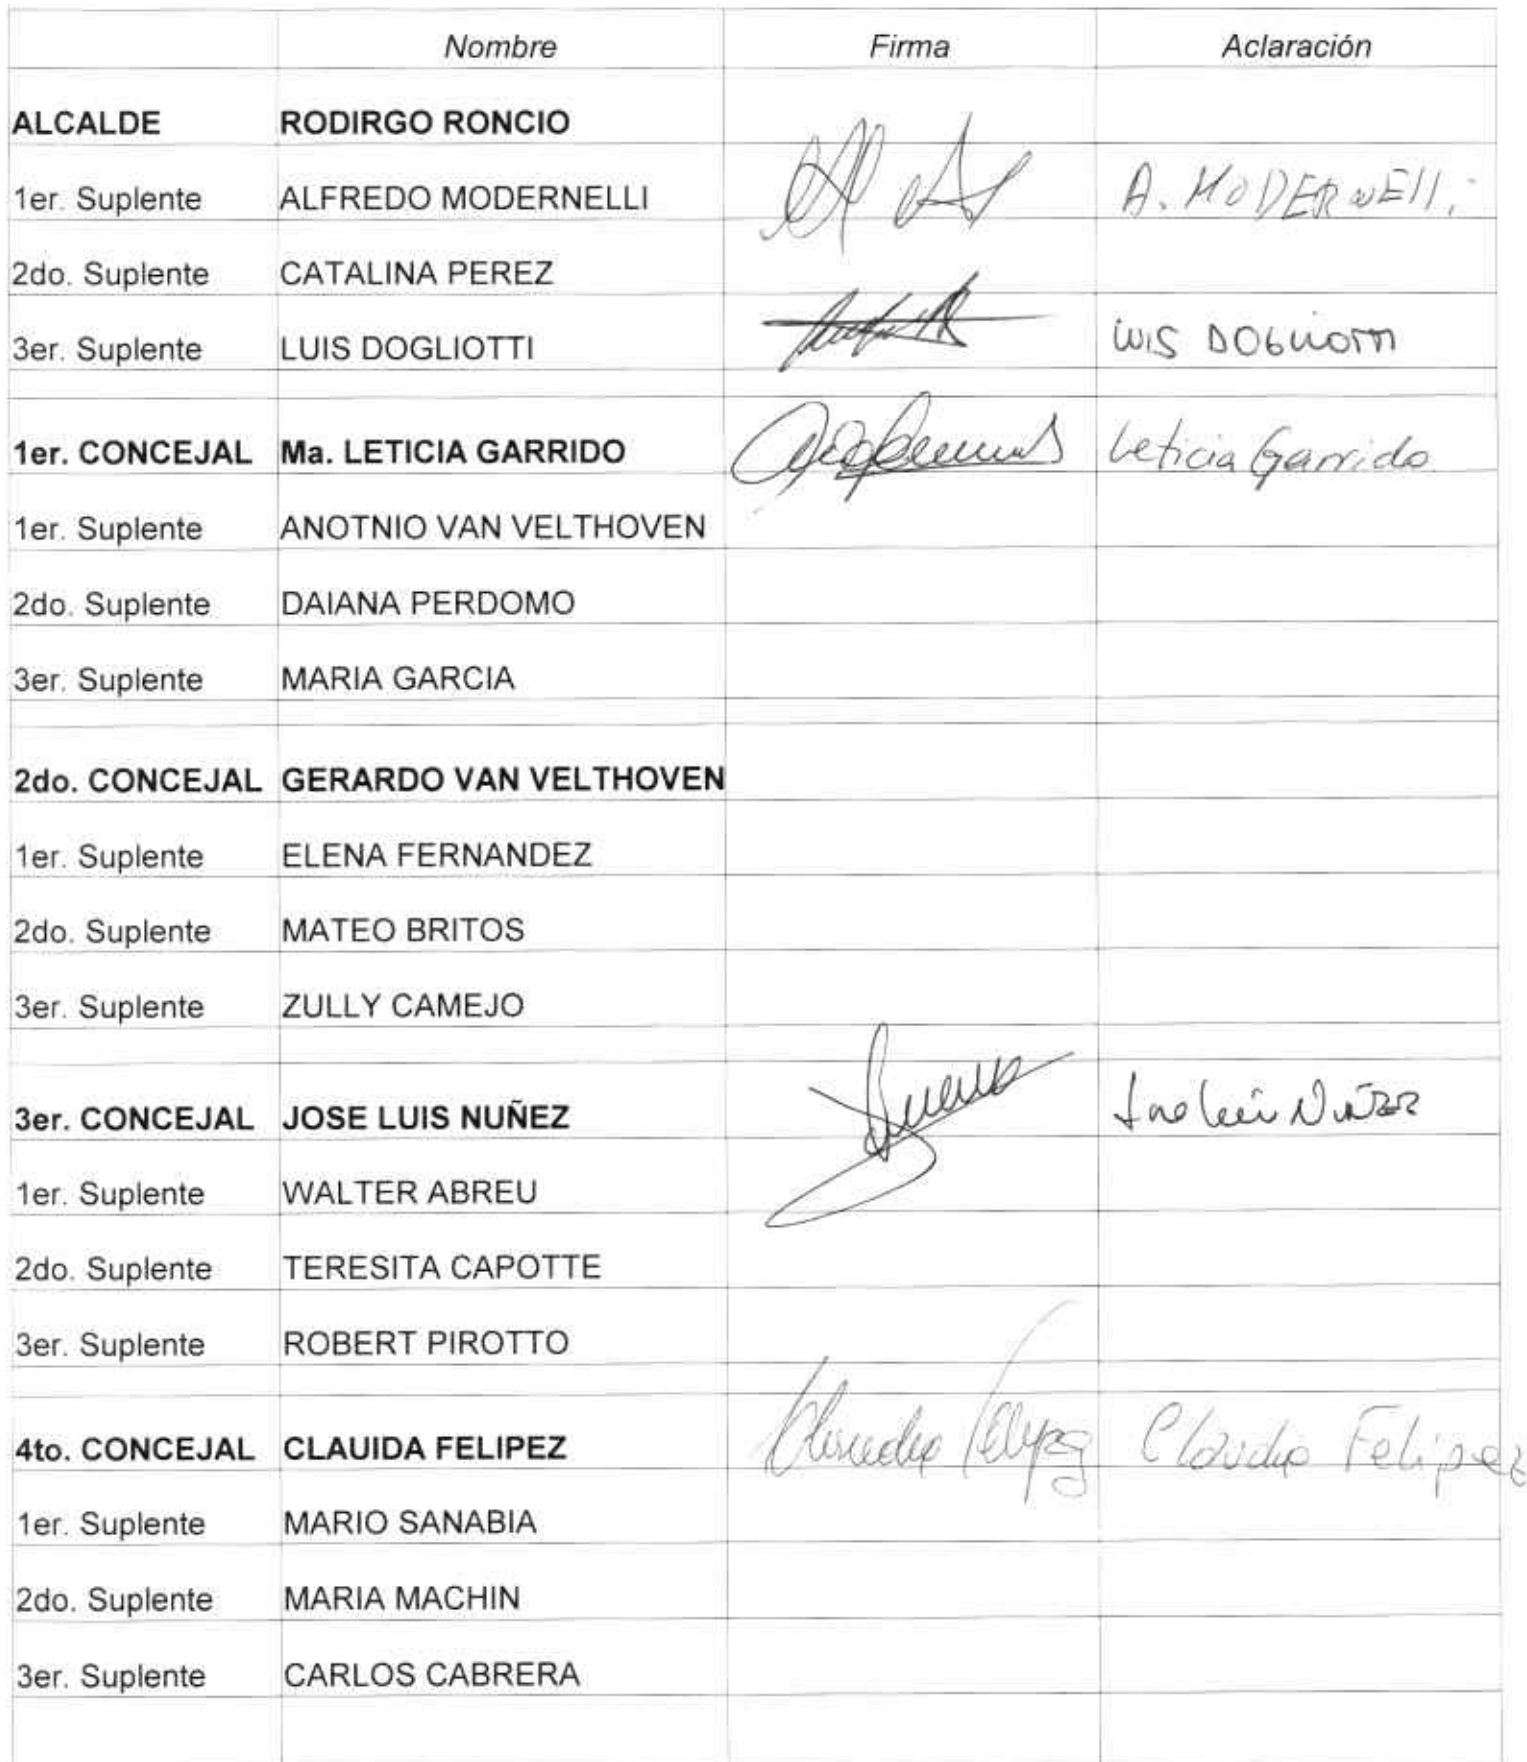 Nombre Firma Aclaración
ALCALDE RODIRGO RONCIO
1er. Suplente ALFREDO MODERNELLI A. MODERNELLI
2do. Suplente CATALINA PEREZ
3er. Suplente LUIS DOGLIOTTI LUIS DOGLIOTTI
1er. CONCEJAL Ma. LETICIA GARRIDO Leticia Garrido
1er. Suplente ANOTNIO VAN VELTHOVEN
2do. Suplente DAIANA PERDOMO
3er. Suplente MARIA GARCIA
2do. CONCEJAL GERARDO VAN VELTHOVEN
1er. Suplente ELENA FERNANDEZ
2do. Suplente MATEO BRITOS
3er. Suplente ZULLY CAMEJO
3er. CONCEJAL JOSE LUIS NUÑEZ Jose Luis NUÑEZ
1er. Suplente WALTER ABREU
2do. Suplente TERESITA CAPOTTE
3er. Suplente ROBERT PIROTTO
4to. CONCEJAL CLAUIDA FELIPEZ Claudia Felipez Claudia Felipez
1er. Suplente MARIO SANABIA
2do. Suplente MARIA MACHIN
3er. Suplente CARLOS CABRERA